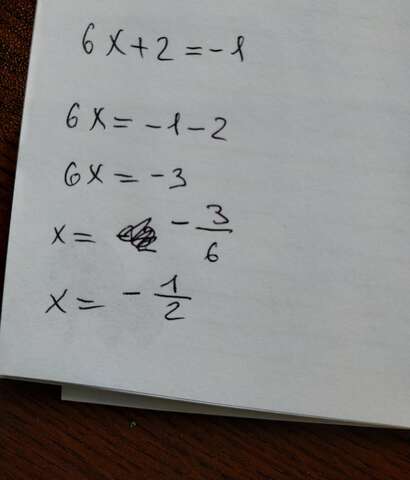 6x+2=-1
6x=-1-2
6x=-3
x= -3/6
x=-1/2